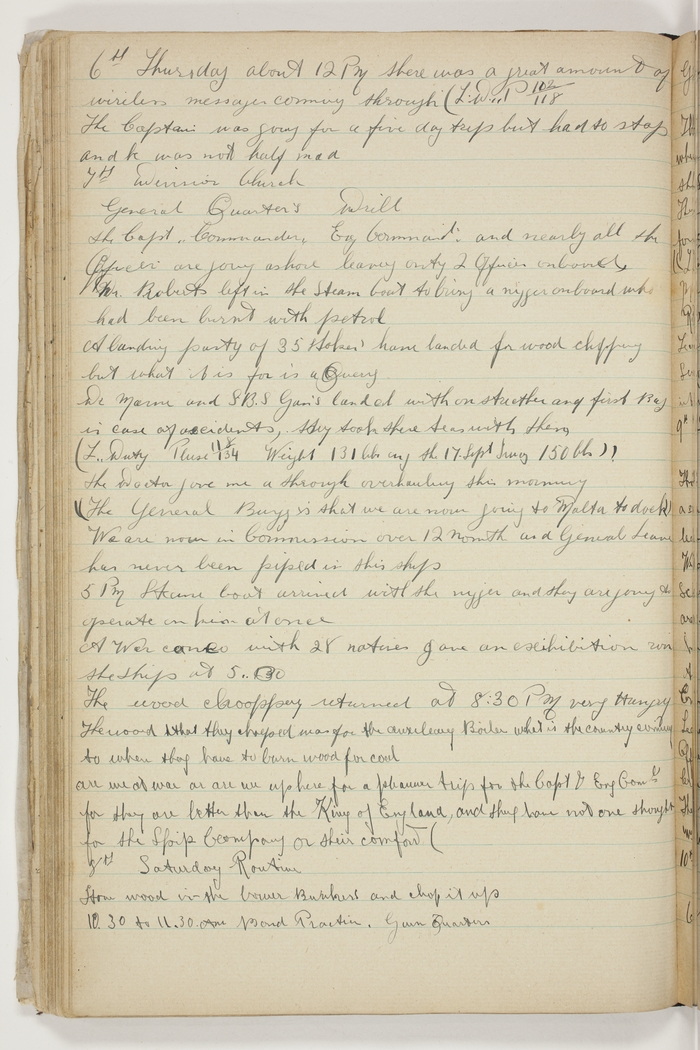 6th Thursday about 12 PM there was a great amount of
wireless messages coming through (L.D. P 102/118
The Captain was going for a five day trip but had to stop
and he was not half mad
7th Division Church
General Quarter's Drill
the Capt, Commander, Eng Command: and nearly all the
Officers are going ashore leaving only 2 Officers onboard,
Mr. Roberts left in the Steam boat to bring a nigger onboard who
had been burnt with petrol
A landing party of 35 Stokers have landed for wood chopping
but what it is for is a Query
De Marne and S.B.S landed with on stretcher and first Bag
in case of accidents, they took there teas with them
(L. Duty Pulse 118/134 Weight 131 lbs on the 17 Sept 150 lbs))
the Doctor gave me a through overhauling this morning
(The General Buzz is that we are now going to Malta to dock)
We are now in Commission over 12 month and General Leave
has never been piped in this ship
5 PM Steam boat arrived with the nigger and they are going to
operate on him at once
A War canoe with 28 natives gave an exihibition run
the ships at 5..30
The wood choopping returned at 8:30 PM very Hungry
The wood that they choped was for the auxileary Boiler what is the country coming
to when they have to burn wood for coal
are we at war or are we up here for a pleasure trip for the Capt & Eng Com
for they are better than the King of England, and they have not one thought
for the Ship Company or their comfort (
8th Saturday Routine
Stow wood in the lower Bunkers and chop it up
10.30 to 11.30 am Band Practice. Gun Quarters